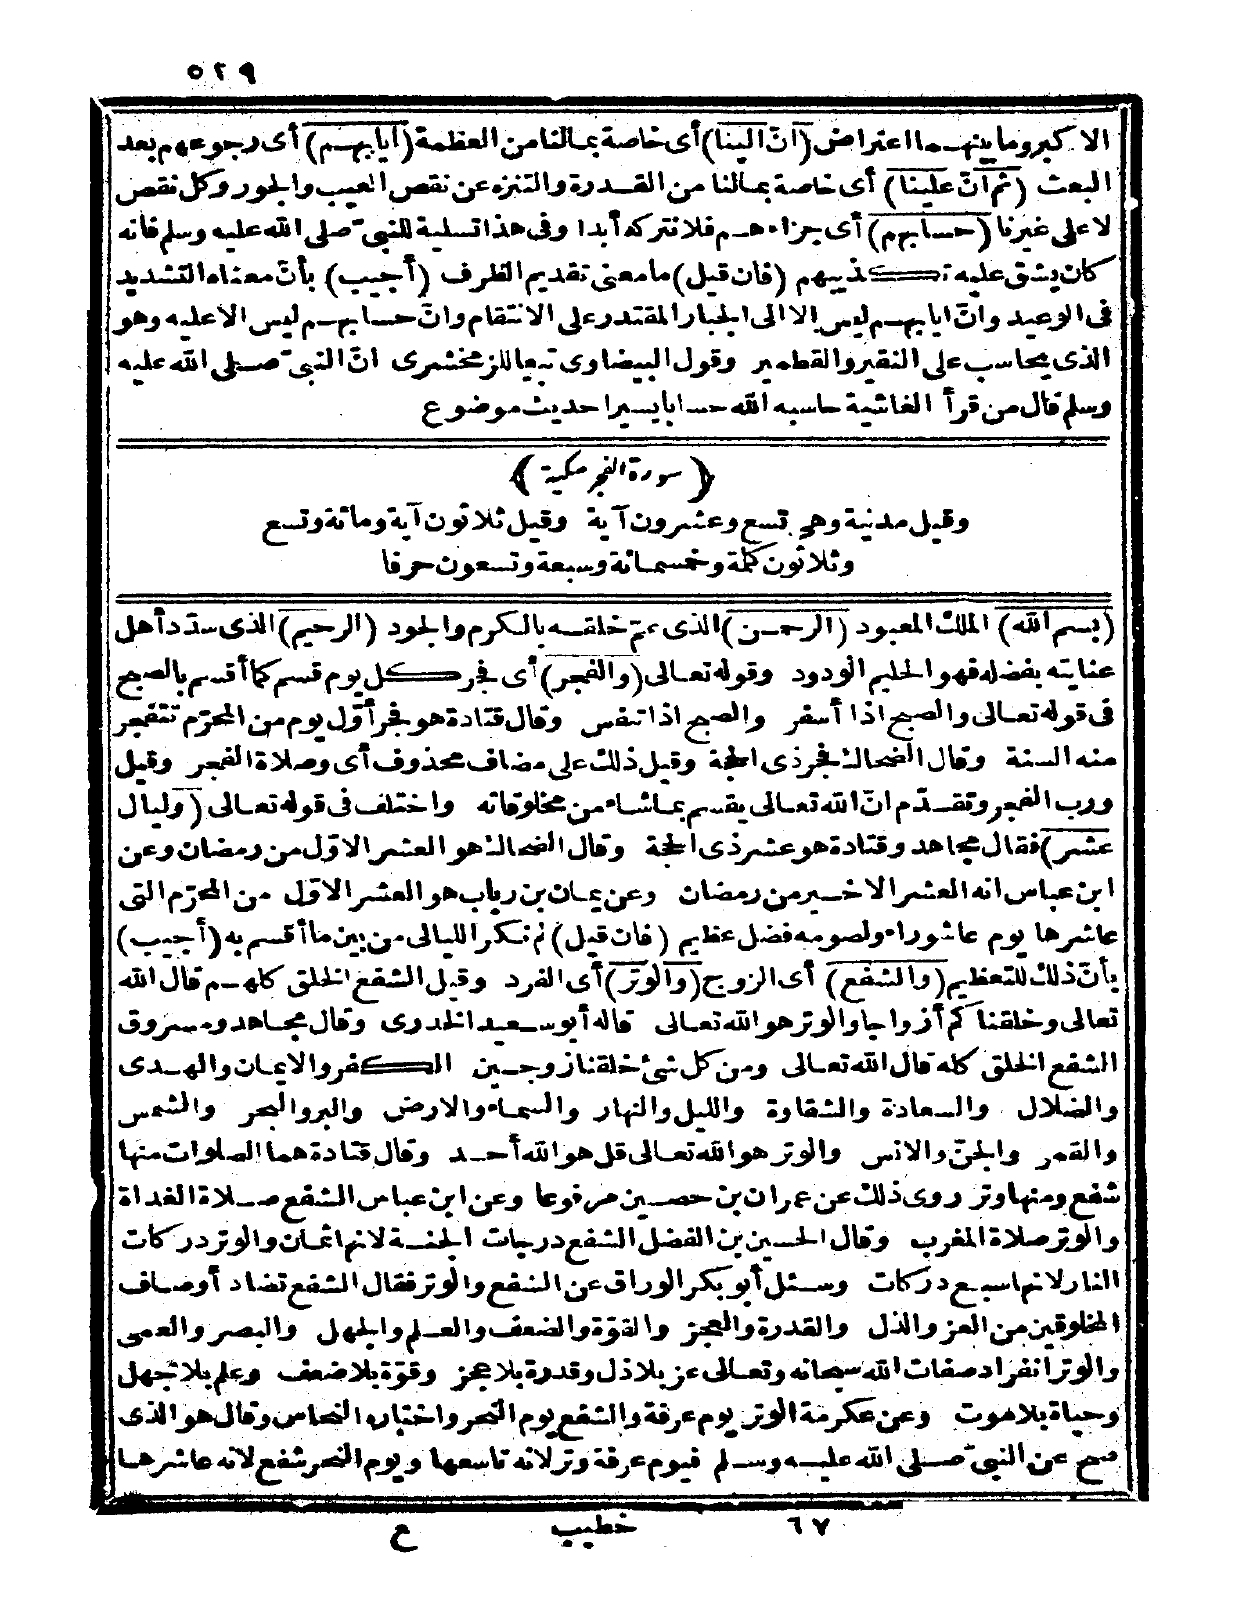 ٥٢٩
الاكبر وما بينهما اعتراض (انّ الينا) أى خاصة بمالنا من العظمة (ايابهم) أى رجوعهم بعد
البعث (ثم انّ علينا) أى خاصة بمالنا من القدرة والتنزه عن نقص العيب والجور وكل نقص
لا على غيرنا (حسابهم) أى جزاءهم فلا نتركه أبدا وفى هذا تسلية للنبىّ صلى الله عليه وسلم فانه
كان يشق عليه تكذيبهم (فان قيل) ما معنى تقديم الظرف (أجيب) بأنّ معناه التشديد
فى الوعيد وانّ ايابهم ليس الا الى الجبار المقتدر على الانتقام وانّ حسابهم ليس الا عليه وهو
الذى يحاسب على النقير والقطمير وقول البيضاوى تبعا للزمخشرى انّ النبىّ صلى الله عليه
وسلم قال من قرأ الغاشية حاسبه الله حسابا يسيرا حديث موضوع
﴿ سورة الفجر مكية ﴾
وقيل مدنية وهى تسع وعشرون آية وقيل ثلاثون آية ومائة وتسع
وثلاثون كلمة وخمسمائة وسبعة وتسعون حرفا
(بسم الله) الملك المعبود (الرحمن) الذى عمّ خلقه بالكرم والجود (الرحيم) الذى سدّد أهل
عنايته بفضله فهو الحليم الودود وقوله تعالى (والفجر) أى فجر كل يوم قسم كما أقسم بالصبح
فى قوله تعالى والصبح اذا أسفر والصبح اذا تنفس وقال قتادة هو فجر أوّل يوم من المحرّم تتفجر
منه السنة وقال الضحاك فجر ذى الحجة وقيل ذلك على مضاف محذوف أى وصلاة الفجر وقيل
ورب الفجر وتقدّم انّ الله تعالى يقسم بماشاء من مخلوقاته واختلف فى قوله تعالى (وليال
عشر) فقال مجاهد وقتادة هو عشر ذى الحجة وقال الضحاك هو العشر الاوّل من رمضان وعن
ابن عباس انه العشر الاخير من رمضان وعن يمان بن رياب هو العشر الاوّل من المحرّم التى
عاشرها يوم عاشوراء ولصومه فضل عظيم (فان قيل) لم نكر الليالى من بين ما أقسم به (أجيب)
بأنّ ذلك للتعظيم (والشفع) أى الزوج (والوتر) أى الفرد وقيل الشفع الخلق كلهم قال الله
تعالى وخلقناكم أزواجا والوتر هو الله تعالى قاله أبو سعيد الخدرى وقال مجاهد ومسروق
الشفع الخلق كله قال الله تعالى ومن كل شئ خلقنا زوجين الكفر والايمان والهدى
والضلال والسعادة والشقاوة والليل والنهار والسماء والارض والبر والبحر والشمس
والقمر والجنّ والانس والوتر هو الله تعالى قل هو الله أحد وقال قتادة هما الصلوات منها
شفع ومنها وتر روى ذلك عن عمران بن حصين مرفوعا وعن ابن عباس الشفع صلاة الغداة
والوتر صلاة المغرب وقال الحسين بن الفضل الشفع درجات الجنة لانها ثمان والوتر دركات
النار لانها سبع دركات وسئل أبو بكر الوراق عن الشفع والوتر فقال الشفع تضاد أوصاف
المخلوقين من العز والذل والقدرة والعجز والقوّة والضعف والعلم والجهل والبصر والعمى
والوتر انفراد صفات الله سبحانه وتعالى عز بلا ذل وقدرة بلا عجز وقوّة بلا ضعف وعلم بلا جهل
وحياة بلا موت وعن عكرمة الوتر يوم عرفة والشفع يوم النحر واختاره النحاس وقال هو الذى
صح عن النبىّ صلى الله عليه وسلم فيوم عرفة وتر لانه تاسعها ويوم النحر شفع لانه عاشرها
٦٧ خطيب ع